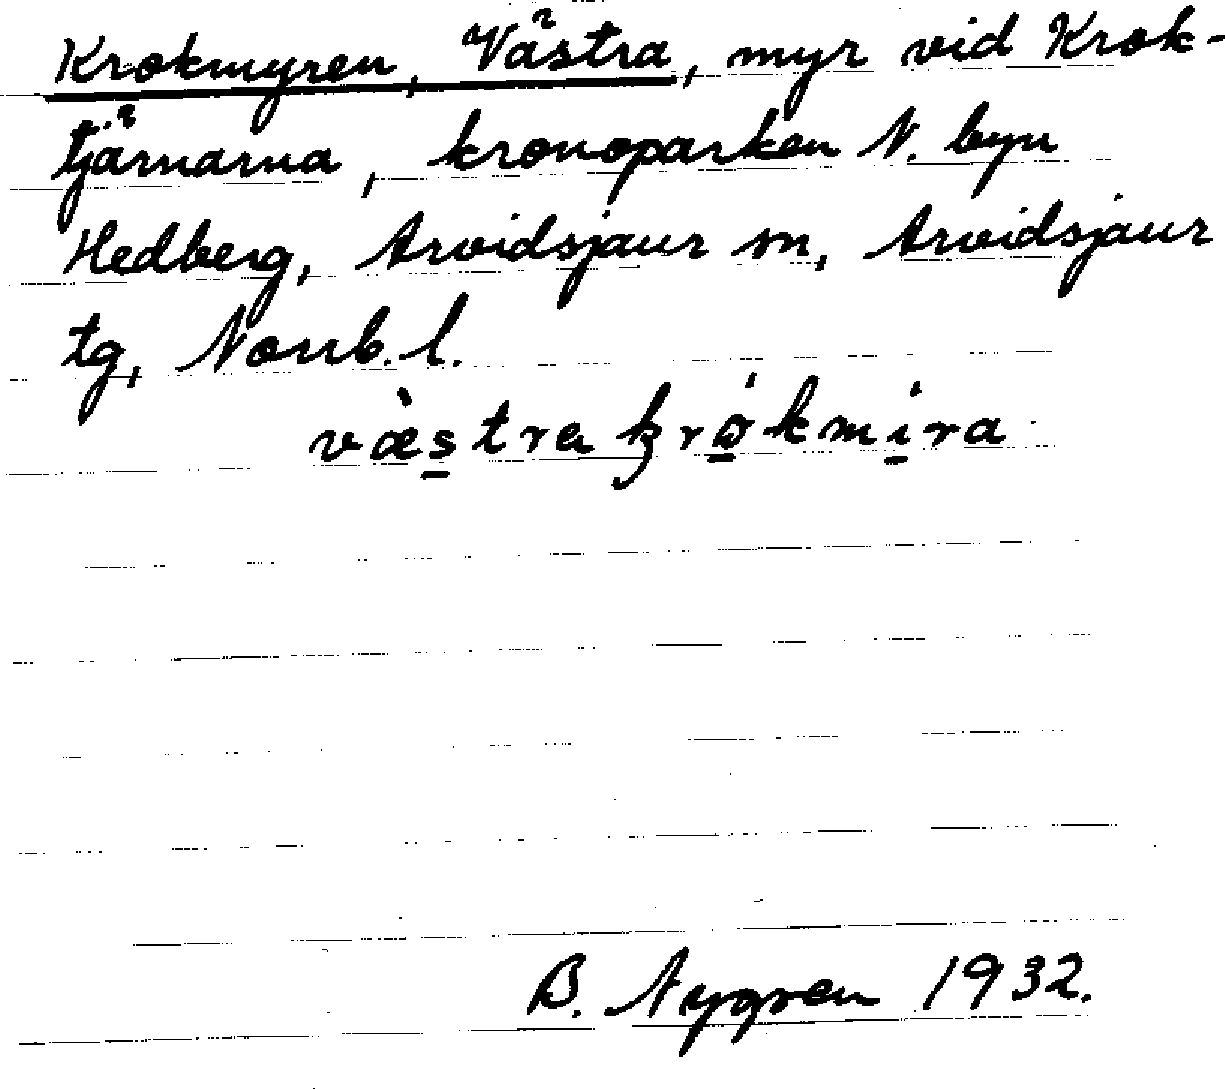 Krokmyren, Västra, myr vid Krok-
tjärnarna, kronoparken N. byn
Hedberg, Arvidsjaur sn, Arvidsjaur
tg, Norrb. l.
væ̀s̲tra krǿ̲kmí̲ra
B. Nygren 1932.